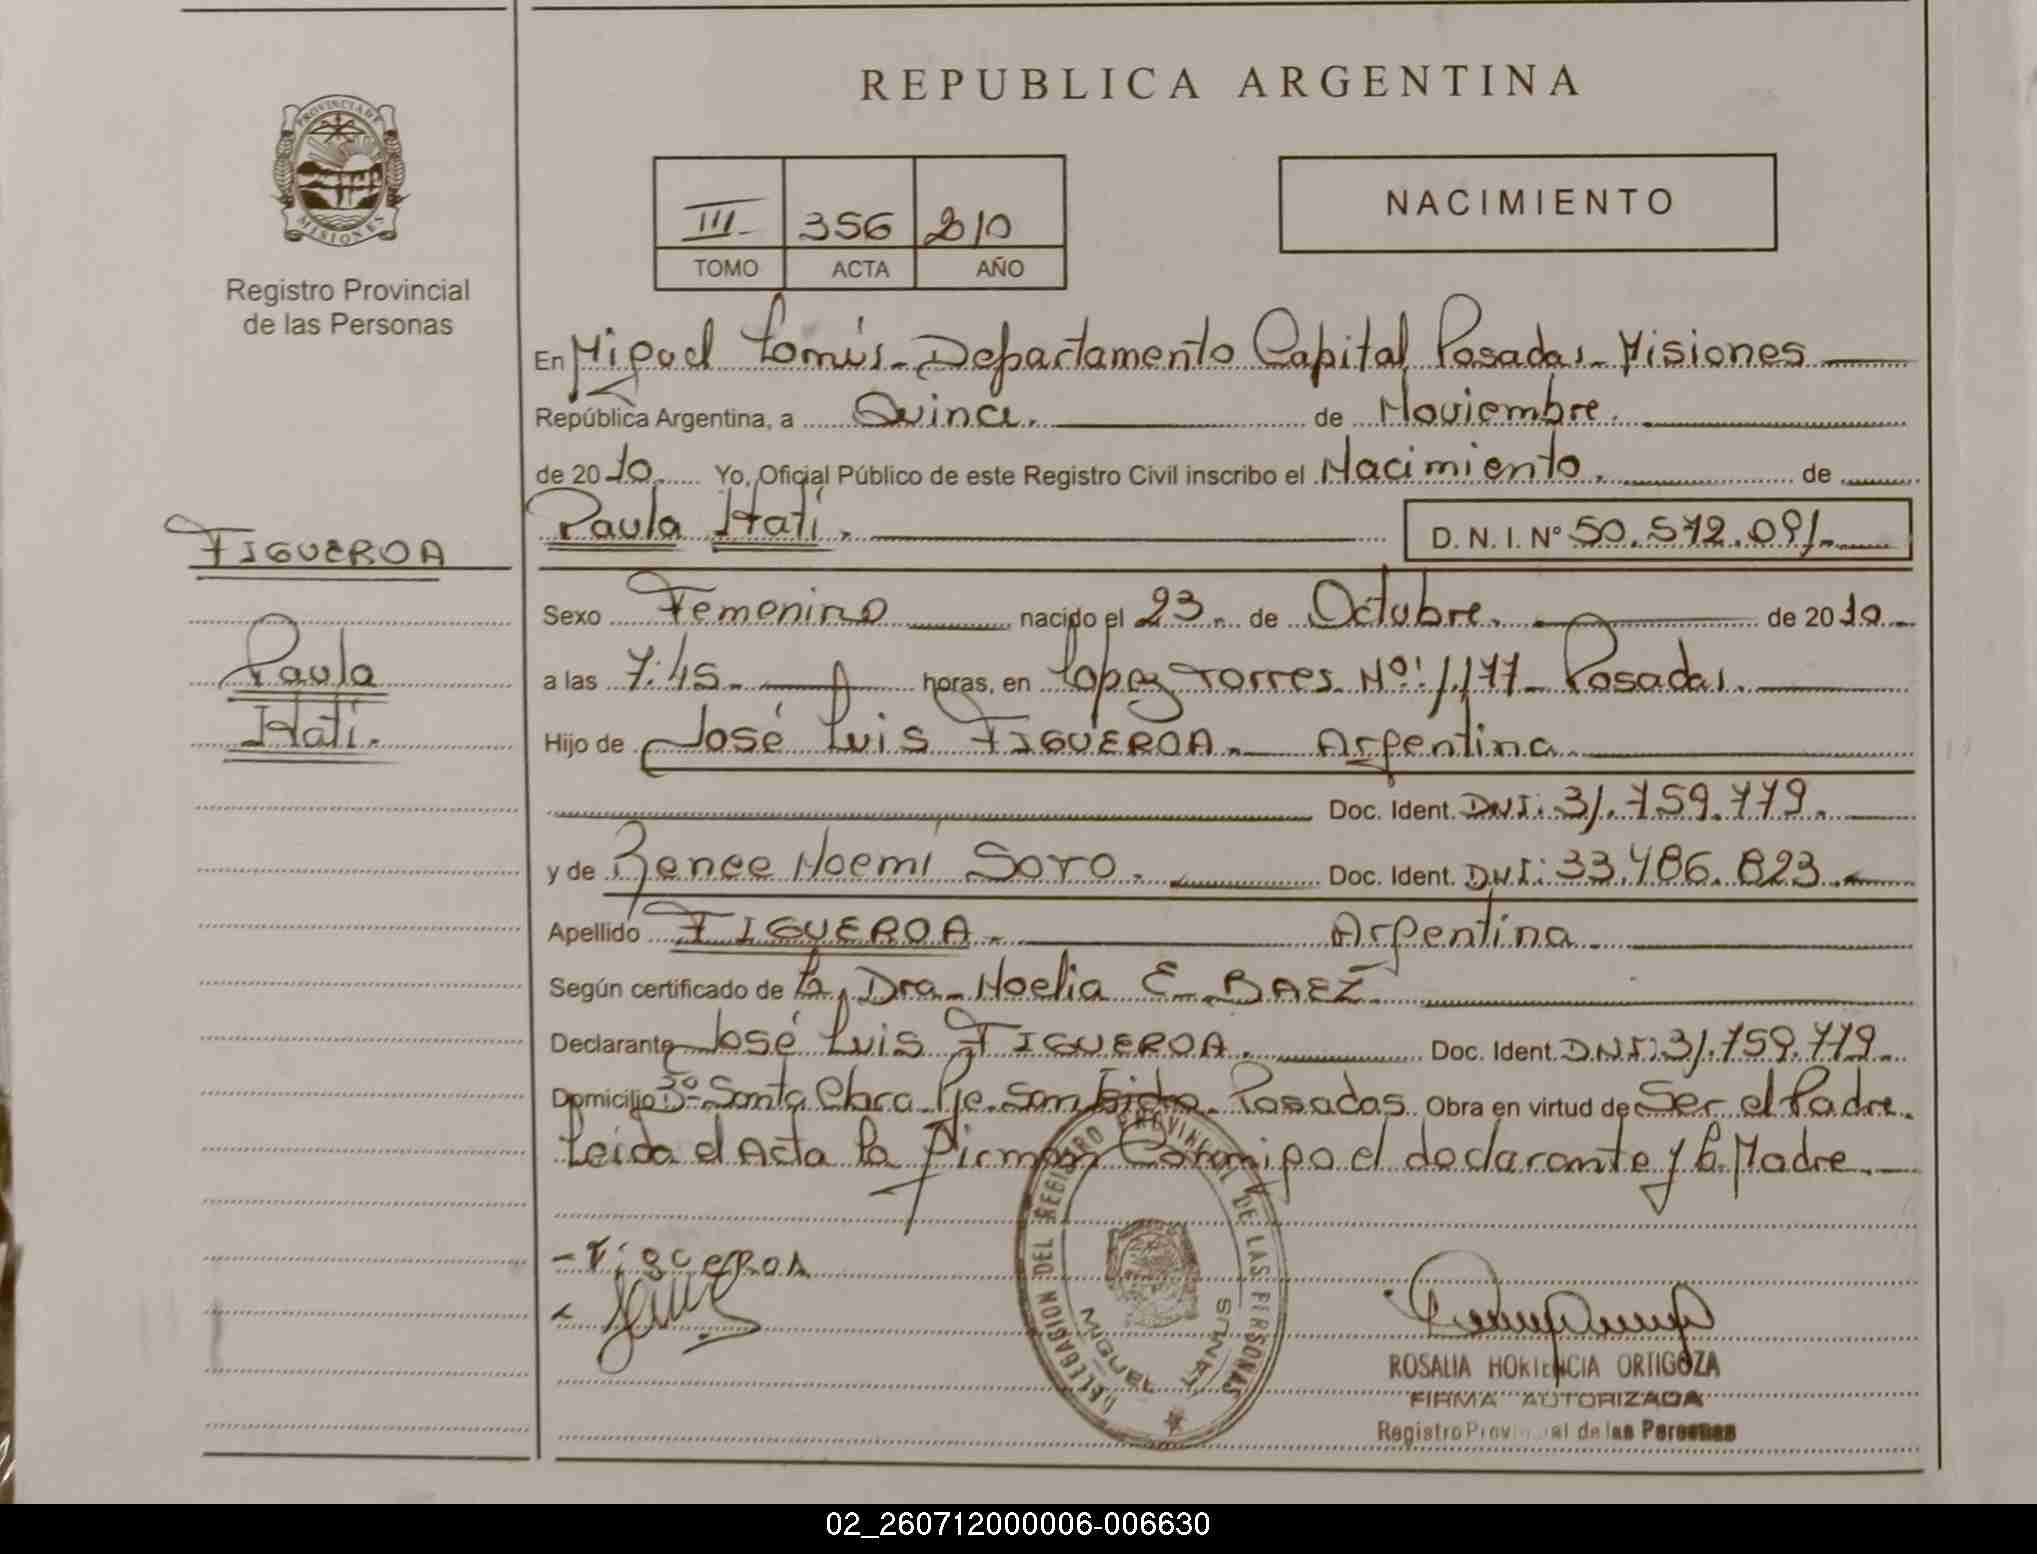 REPUBLICA ARGENTINA
PROVINCIA DE MISIONES
Registro Provincial
de las Personas
III - 356 2010
TOMO ACTA AÑO
NACIMIENTO
En Miguel Lanús - Departamento Capital Posadas - Misiones
República Argentina, a Quince. de Noviembre.
de 2010. Yo, Oficial Público de este Registro Civil inscribo el Nacimiento. de
FIGUEROA
Paula
Itatí.
Paula Itatí. D. N. I. Nº 50.572.091-
Sexo Femenino nacido el 23. de Octubre. de 2010.
a las 7:45- horas, en Lopez Torres Nº: 1.177- Posadas.
Hijo de José Luis FIGUEROA. Argentina
Doc. Ident. DNI: 31.759.779.
y de Renee Noemí SOTO. Doc. Ident. DNI: 33.486.823.
Apellido FIGUEROA. Argentina
Según certificado de la Dra. Noelia E. BAEZ
Declarante José Luis FIGUEROA. Doc. Ident. DNI: 31.759.779.
Domicilio Bº Santa Clara Pje. San Isidro - Posadas. Obra en virtud de Ser el Padre.
Leida el Acta la firman Conmigo el declarante y la Madre.
- Figueroa
DELEGACION DEL REGISTRO PROVINCIAL DE LAS PERSONAS
MIGUEL LANUS
ROSALIA HORTENCIA ORTIGOZA
FIRMA AUTORIZADA
Registro Provincial de las Personas
02_260712000006-006630